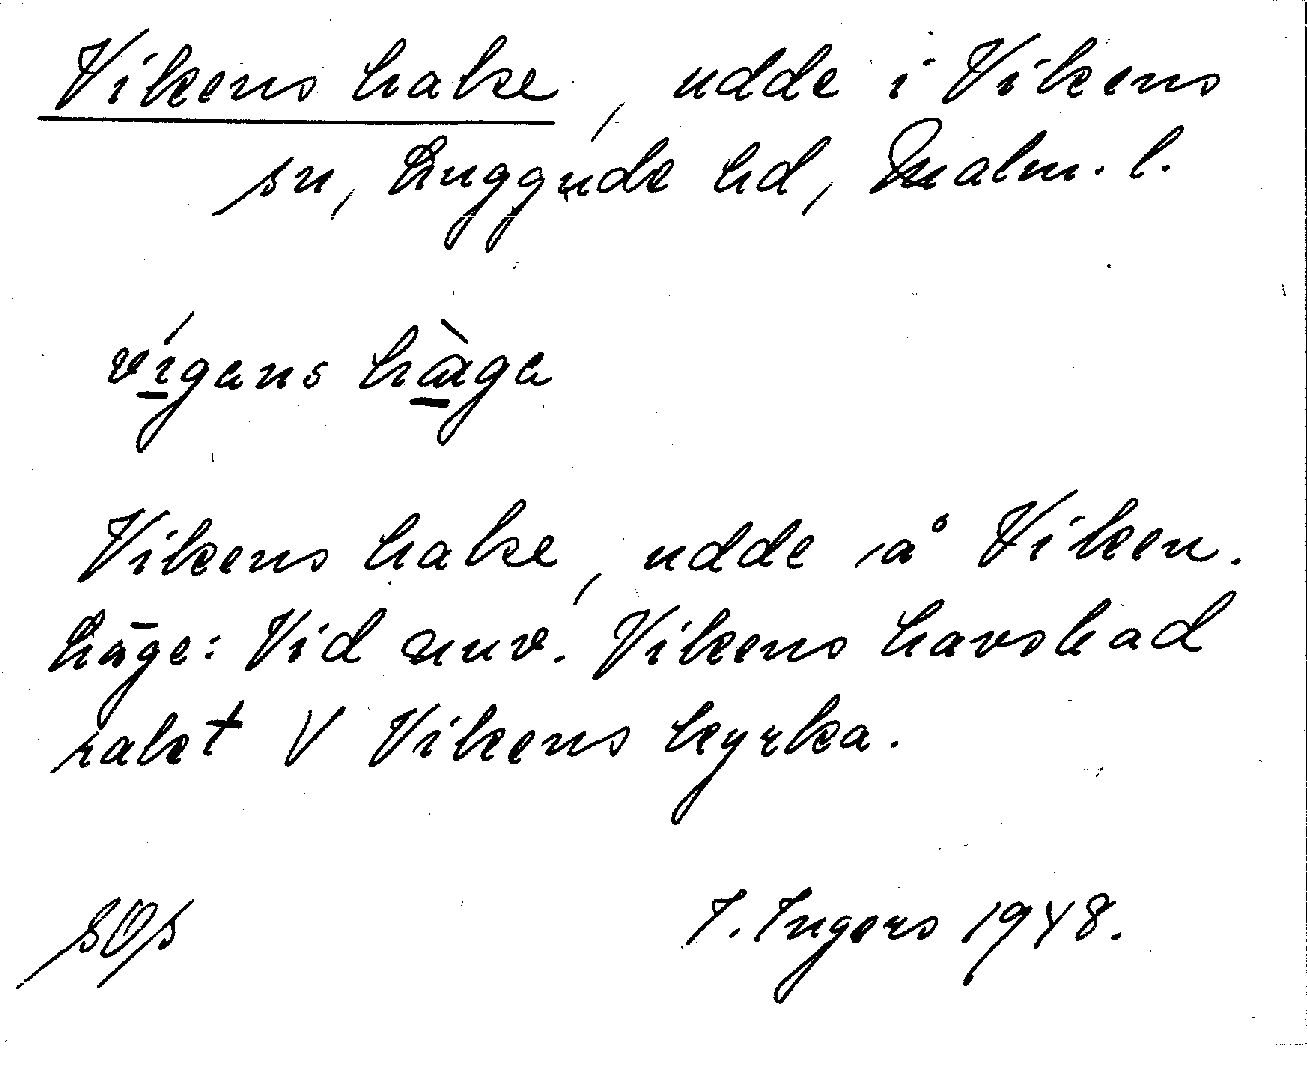 Vikens hake, udde i Vikens
sn, Luggude hd, Malm. l.
vígans hàga
Vikens hake, udde å Viken.
Läge: Vid nuv. Vikens havsbad
rakt V Vikens kyrka.
SOS
I. Ingers 1948.